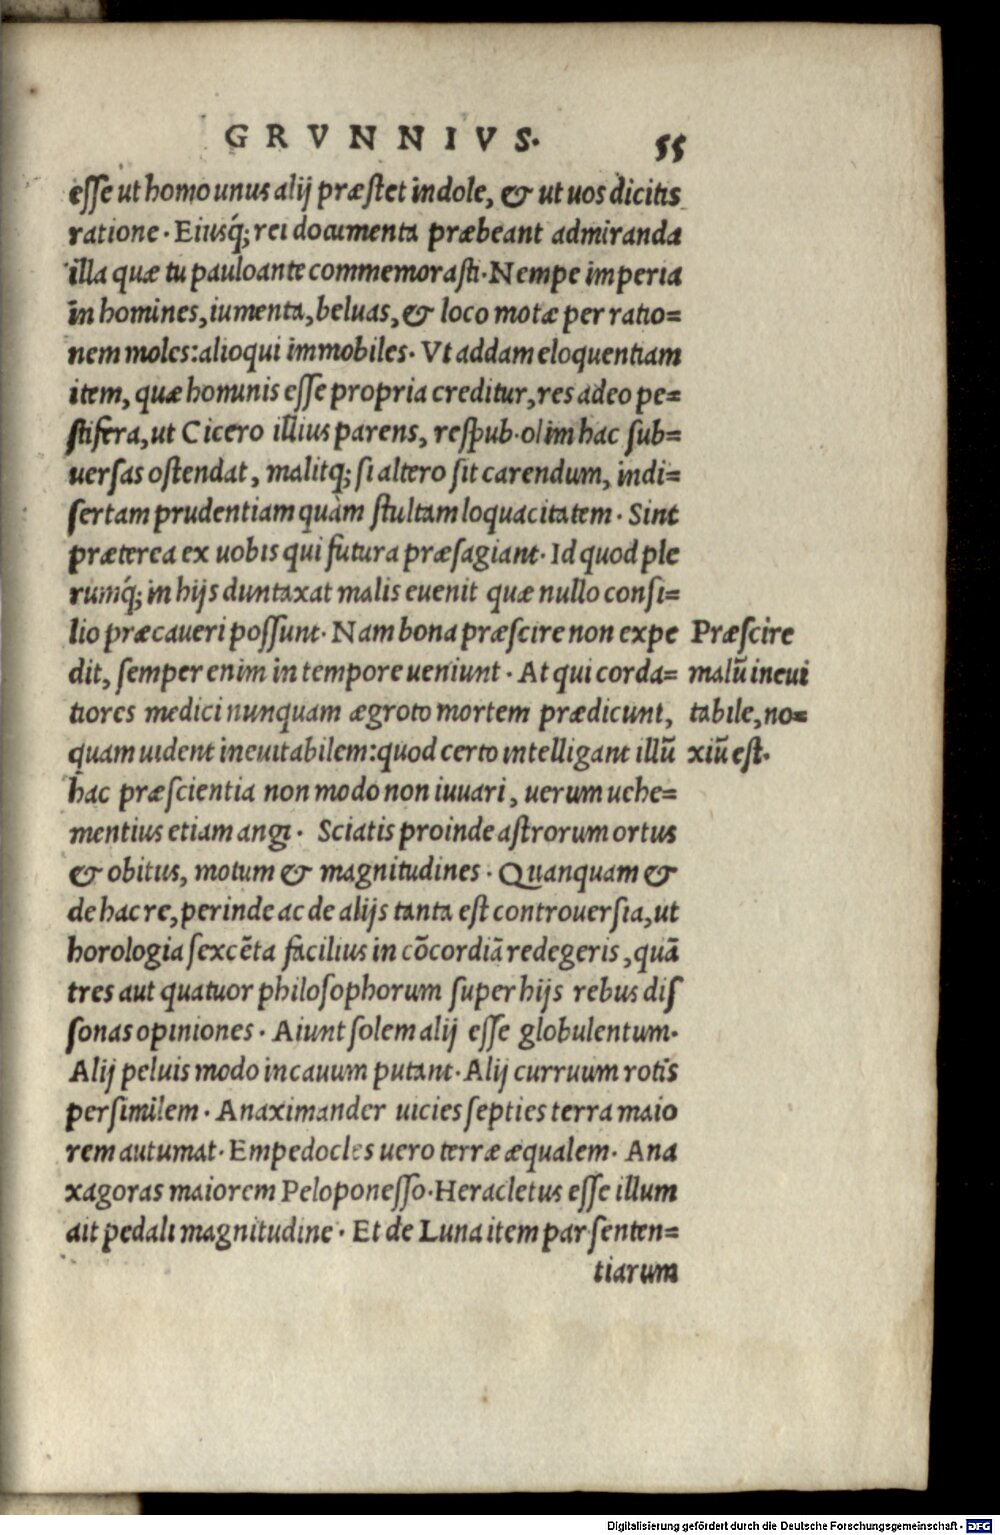 GRVNNIVS.
55
esse ut homo unus alij præstet indole, & ut uos dicitis
ratione. Eiusq́; rei documenta præbeant admiranda
illa quæ tu pauloante commemorasti. Nempe imperia
in homines, iumenta, beluas, & loco motæ per ratio=
nem moles: alioqui immobiles. Vt addam eloquentiam
item, quæ hominis esse propria creditur, res adeo pe=
stifera, ut Cicero illius parens, respub. olim hac sub=
uersas ostendat, malitq; si altero sit carendum, indi=
sertam prudentiam quàm stultam loquacitatem. Sint
præterea ex uobis qui futura præsagiant. Id quod ple
rumq́; in hijs duntaxat malis euenit quæ nullo consi=
lio præcaueri possunt. Nam bona præscire non expe
dit, semper enim in tempore ueniunt. At qui corda=
tiores medici nunquam ægroto mortem prædicunt,
quam uident ineuitabilem: quod certo intelligant illũ
hac præscientia non modo non iuuari, uerum uehe=
mentius etiam angi. Sciatis proinde astrorum ortus
& obitus, motum & magnitudines. Quanquam &
de hac re, perinde ac de alijs tanta est controuersia, ut
horologia sexcẽta facilius in cõcordiã redegeris, quã
tres aut quatuor philosophorum super hijs rebus dis
sonas opiniones. Aiunt solem alij esse globulentum.
Alij peluis modo incauum putant. Alij curruum rotis
persimilem. Anaximander uicies septies terra maio
rem autumat. Empedocles uero terræ æqualem. Ana
xagoras maiorem Peloponesso. Heracletus esse illum
ait pedali magnitudine. Et de Luna item par senten=
tiarum
Præscire
malũ ineui
tabile, no=
xiũ est.
Digitalisierung gefördert durch die Deutsche Forschungsgemeinschaft - DFG